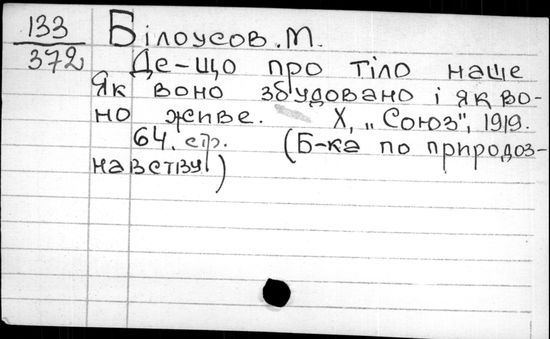 133
372
Білоусов. М.
Де-що про тіло наше
Як воно збудовано і як во-
но живе. Х, „Союз", 1919.
64. стр. (Б-ка по природоз-
навству)